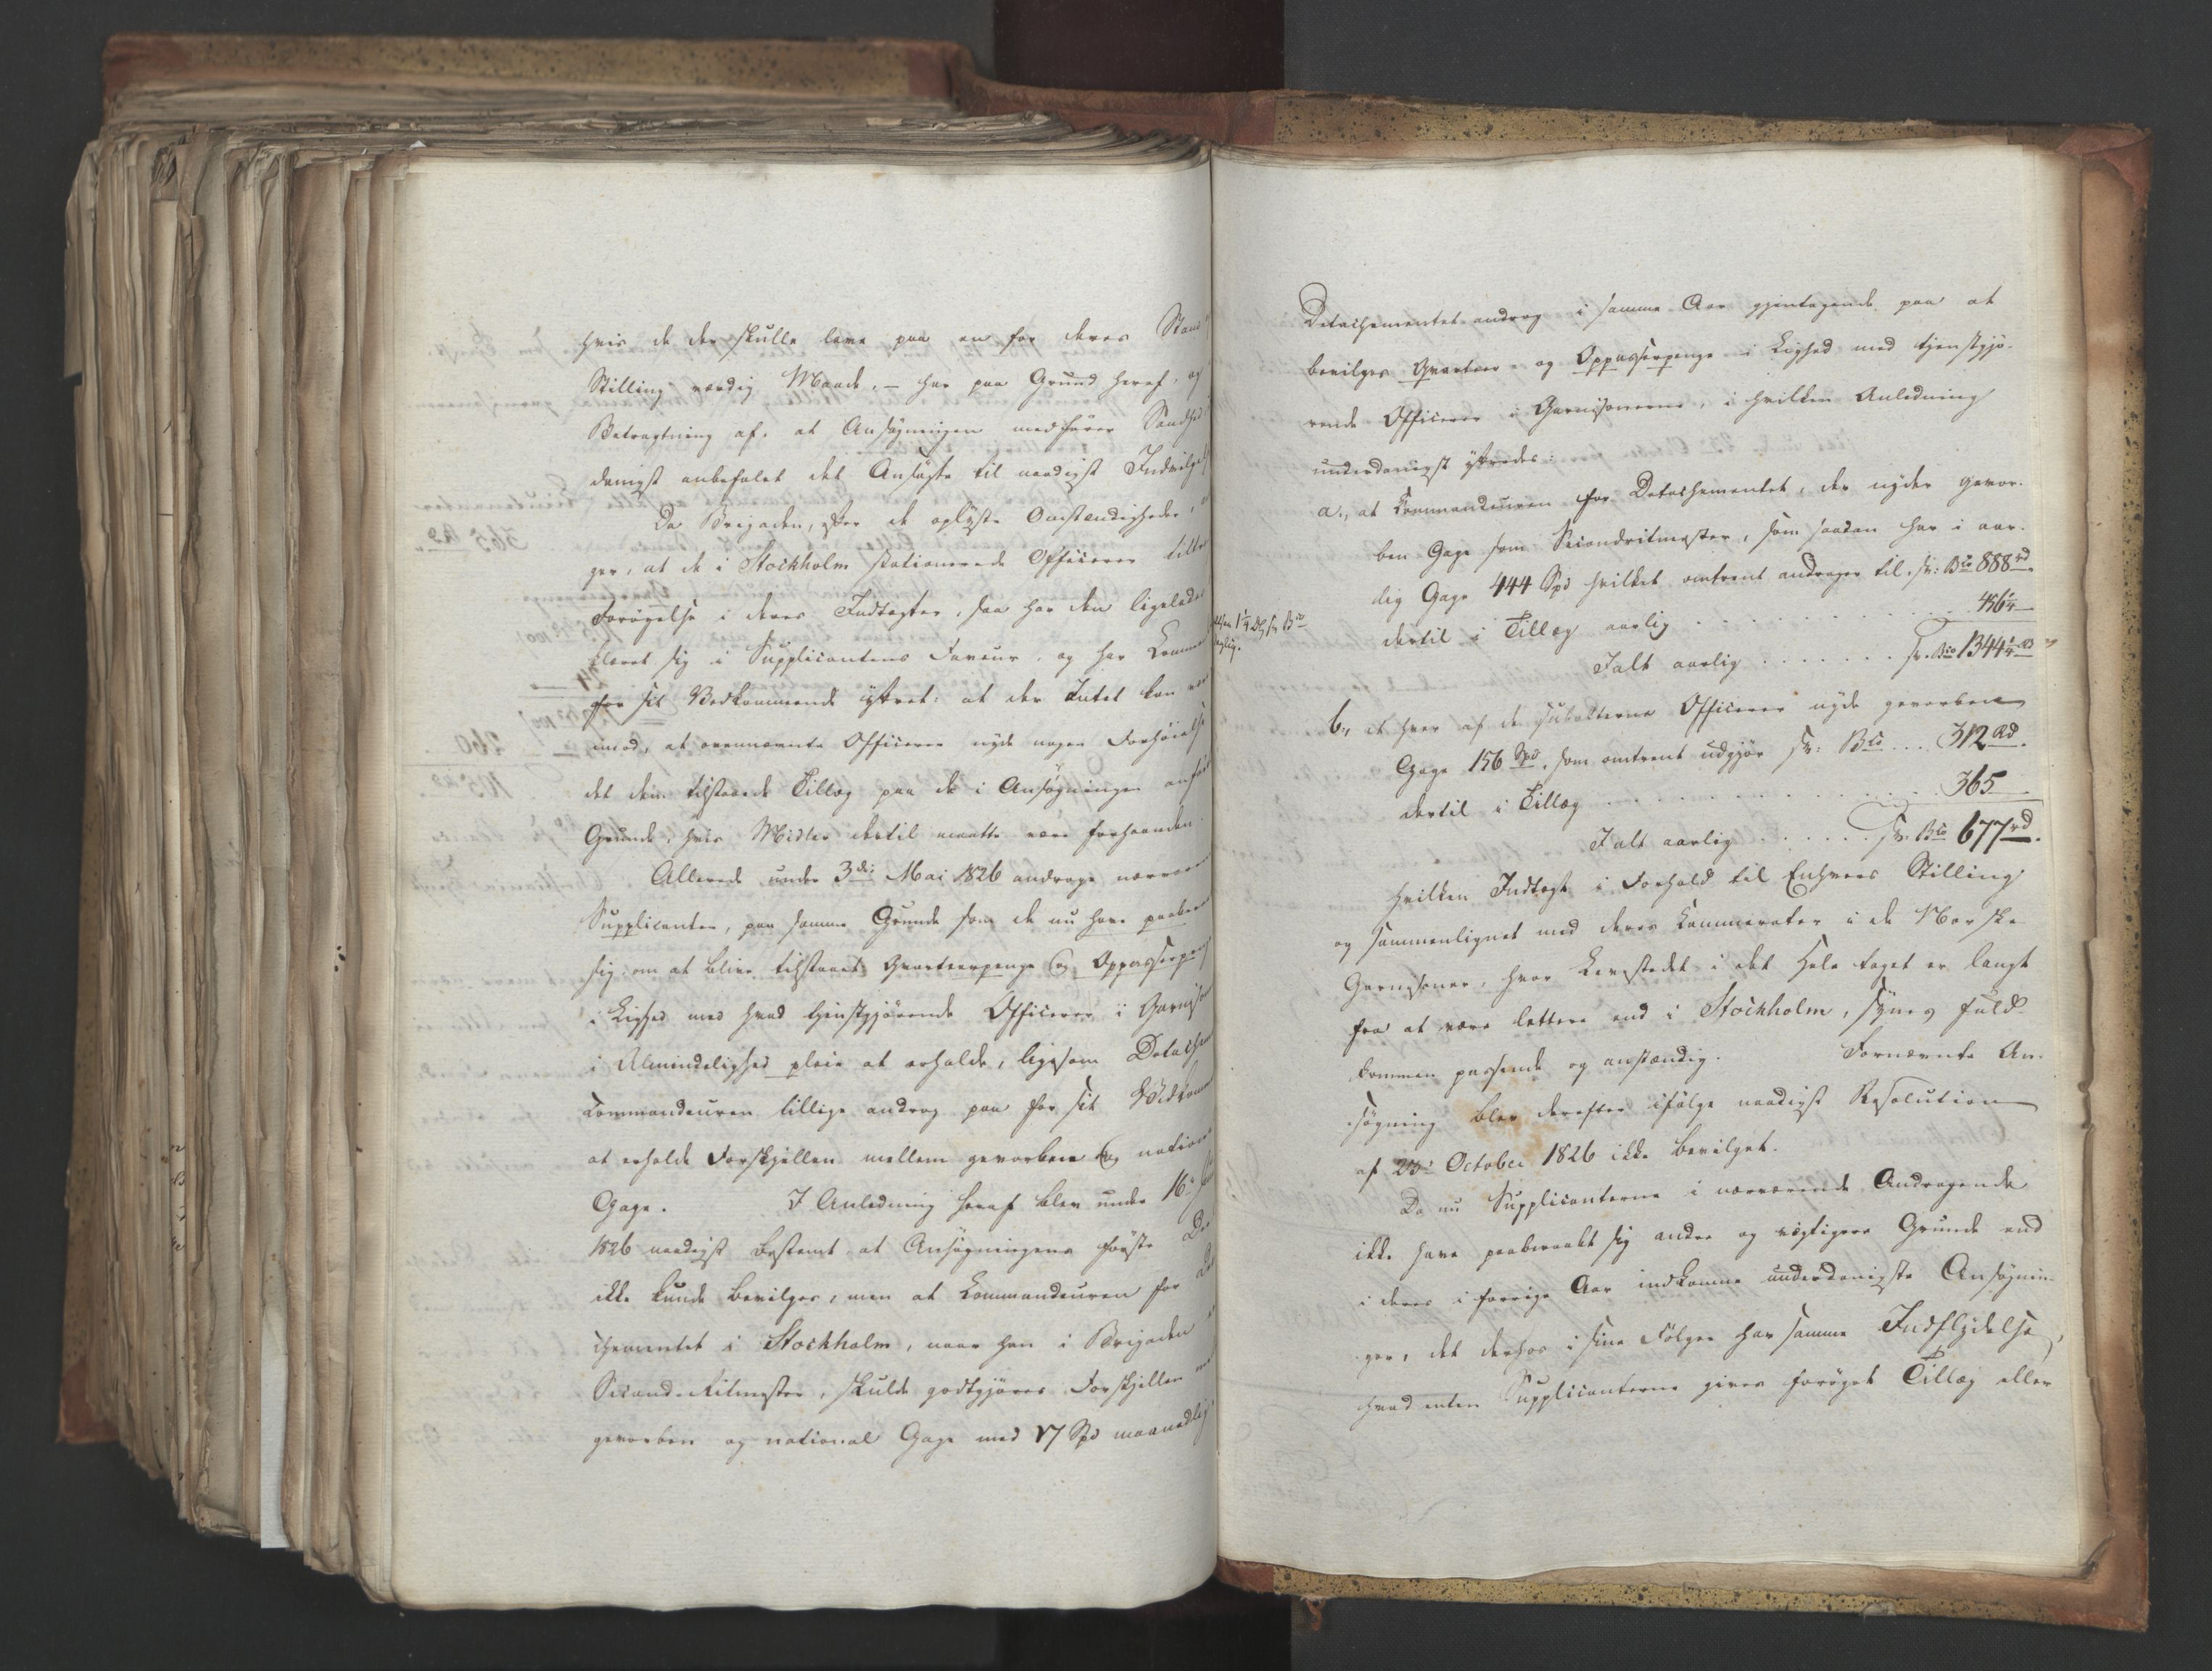 hvis de der skulle leve paa en for deres Stand
Stilling værdig Maade, – har paa Grund heraf, og
Betragtning af, at Ansøgningen medfører Sandhed
danigst anbefalet det Ansøgte til naadigst Indvilgel
Da Brigaden, efter de oplyste Omstændigheder,
ger, at de i Stockholm stationerede Officerer tiltr
Forøgelse i deres Indtægter, saa har den ligeledes
klaret sig i Supplicantens Faveur, og har Comman
for sit Vedkommende yttret: at der Intet kan være
imod, at ovennævnte Officerer nyde nogen Forhøielse
det dem tilstaaede Tillæg paa de i Ansøgningen anførte
Grunde, hvis Midler dertil maatte være forhaanden.
Allerede under 3die Mai 1826 androge nærvær
Supplicanter, paa samme Grunde som de nu have paabe
sig om at blive tilstaaet Qvarteerpenge og Oppasserpenge
i Lighed med hvad tjenstgjørende Officerer i Garnison
i Almindelighed pleie at erholde, ligesom Detachem
Commandeuren tillige androg paa for sit Vedkomm
at erholde Forskjellen mellem gevorben og national
Gage. I Anledning heraf blev under 16
1826 naadigst bestemt at Ansøgningens første
ikke kunde bevilges, men at Commandeuren for
chementet i Stockholm, naar han i Brigaden
Second-Ritmester, skulde godtgjøres Forskjellen
gevorben og national Gage med 17 Spd maanedlig
Detachementet androg i samme Aar gjentagende paa at
bevilges Qvarteer- og Oppasserpenge i Lighed med tjenstgjø-
rende Officerer i Garnisonerne, i hvilken Anledning
underdanigst yttredes:
a., at Commandeuren for Detachementet, der nyder gevor-
ben Gage som Secondritmester, som saadan har i aar-
lig Gage 444 Spd hvilket omtrent andrager til Sv: Bco 888 rd.
1 1/4 rd Sv Bco
daglig.
dertil i Tillæg aarlig . . . . . . . 456 1/4
Ialt aarlig . . . . . . . Sv. Bco 1344 1/4 rd
b., at hver af de subalterne Officerer nyde gevorben
Gage 156 Spd, som omtrent udgjør Sv: Bco . . . 312 rd.
dertil i Tillæg . . . . . . . 365
Ialt aarlig . . . . . . Sv. Bco 677 rd.
hvilken Indtægt i Forhold til Enhvers Stilling
og sammenlignet med deres Kammerater i de Norske
Garnisoner, hvor Levestedet i det Hele taget er langt
fra at være lettere end i Stockholm, synes fuld-
kommen passende og anstændig. Fornævnte An-
søgning blev derefter ifølge naadigst Resolution
af 23 October 1826 ikke bevilget.
Da nu Supplicanterne i nærværende Andragende
ikke have paaberaabt sig andre og vigtigere Grunde end
i deres i forrige Aar indkomne underdanigste Ansøgnin-
ger, det derhos i sine Følger har samme Indflydelse,
hvad enten Supplicanterne gives forøget Tillæg eller